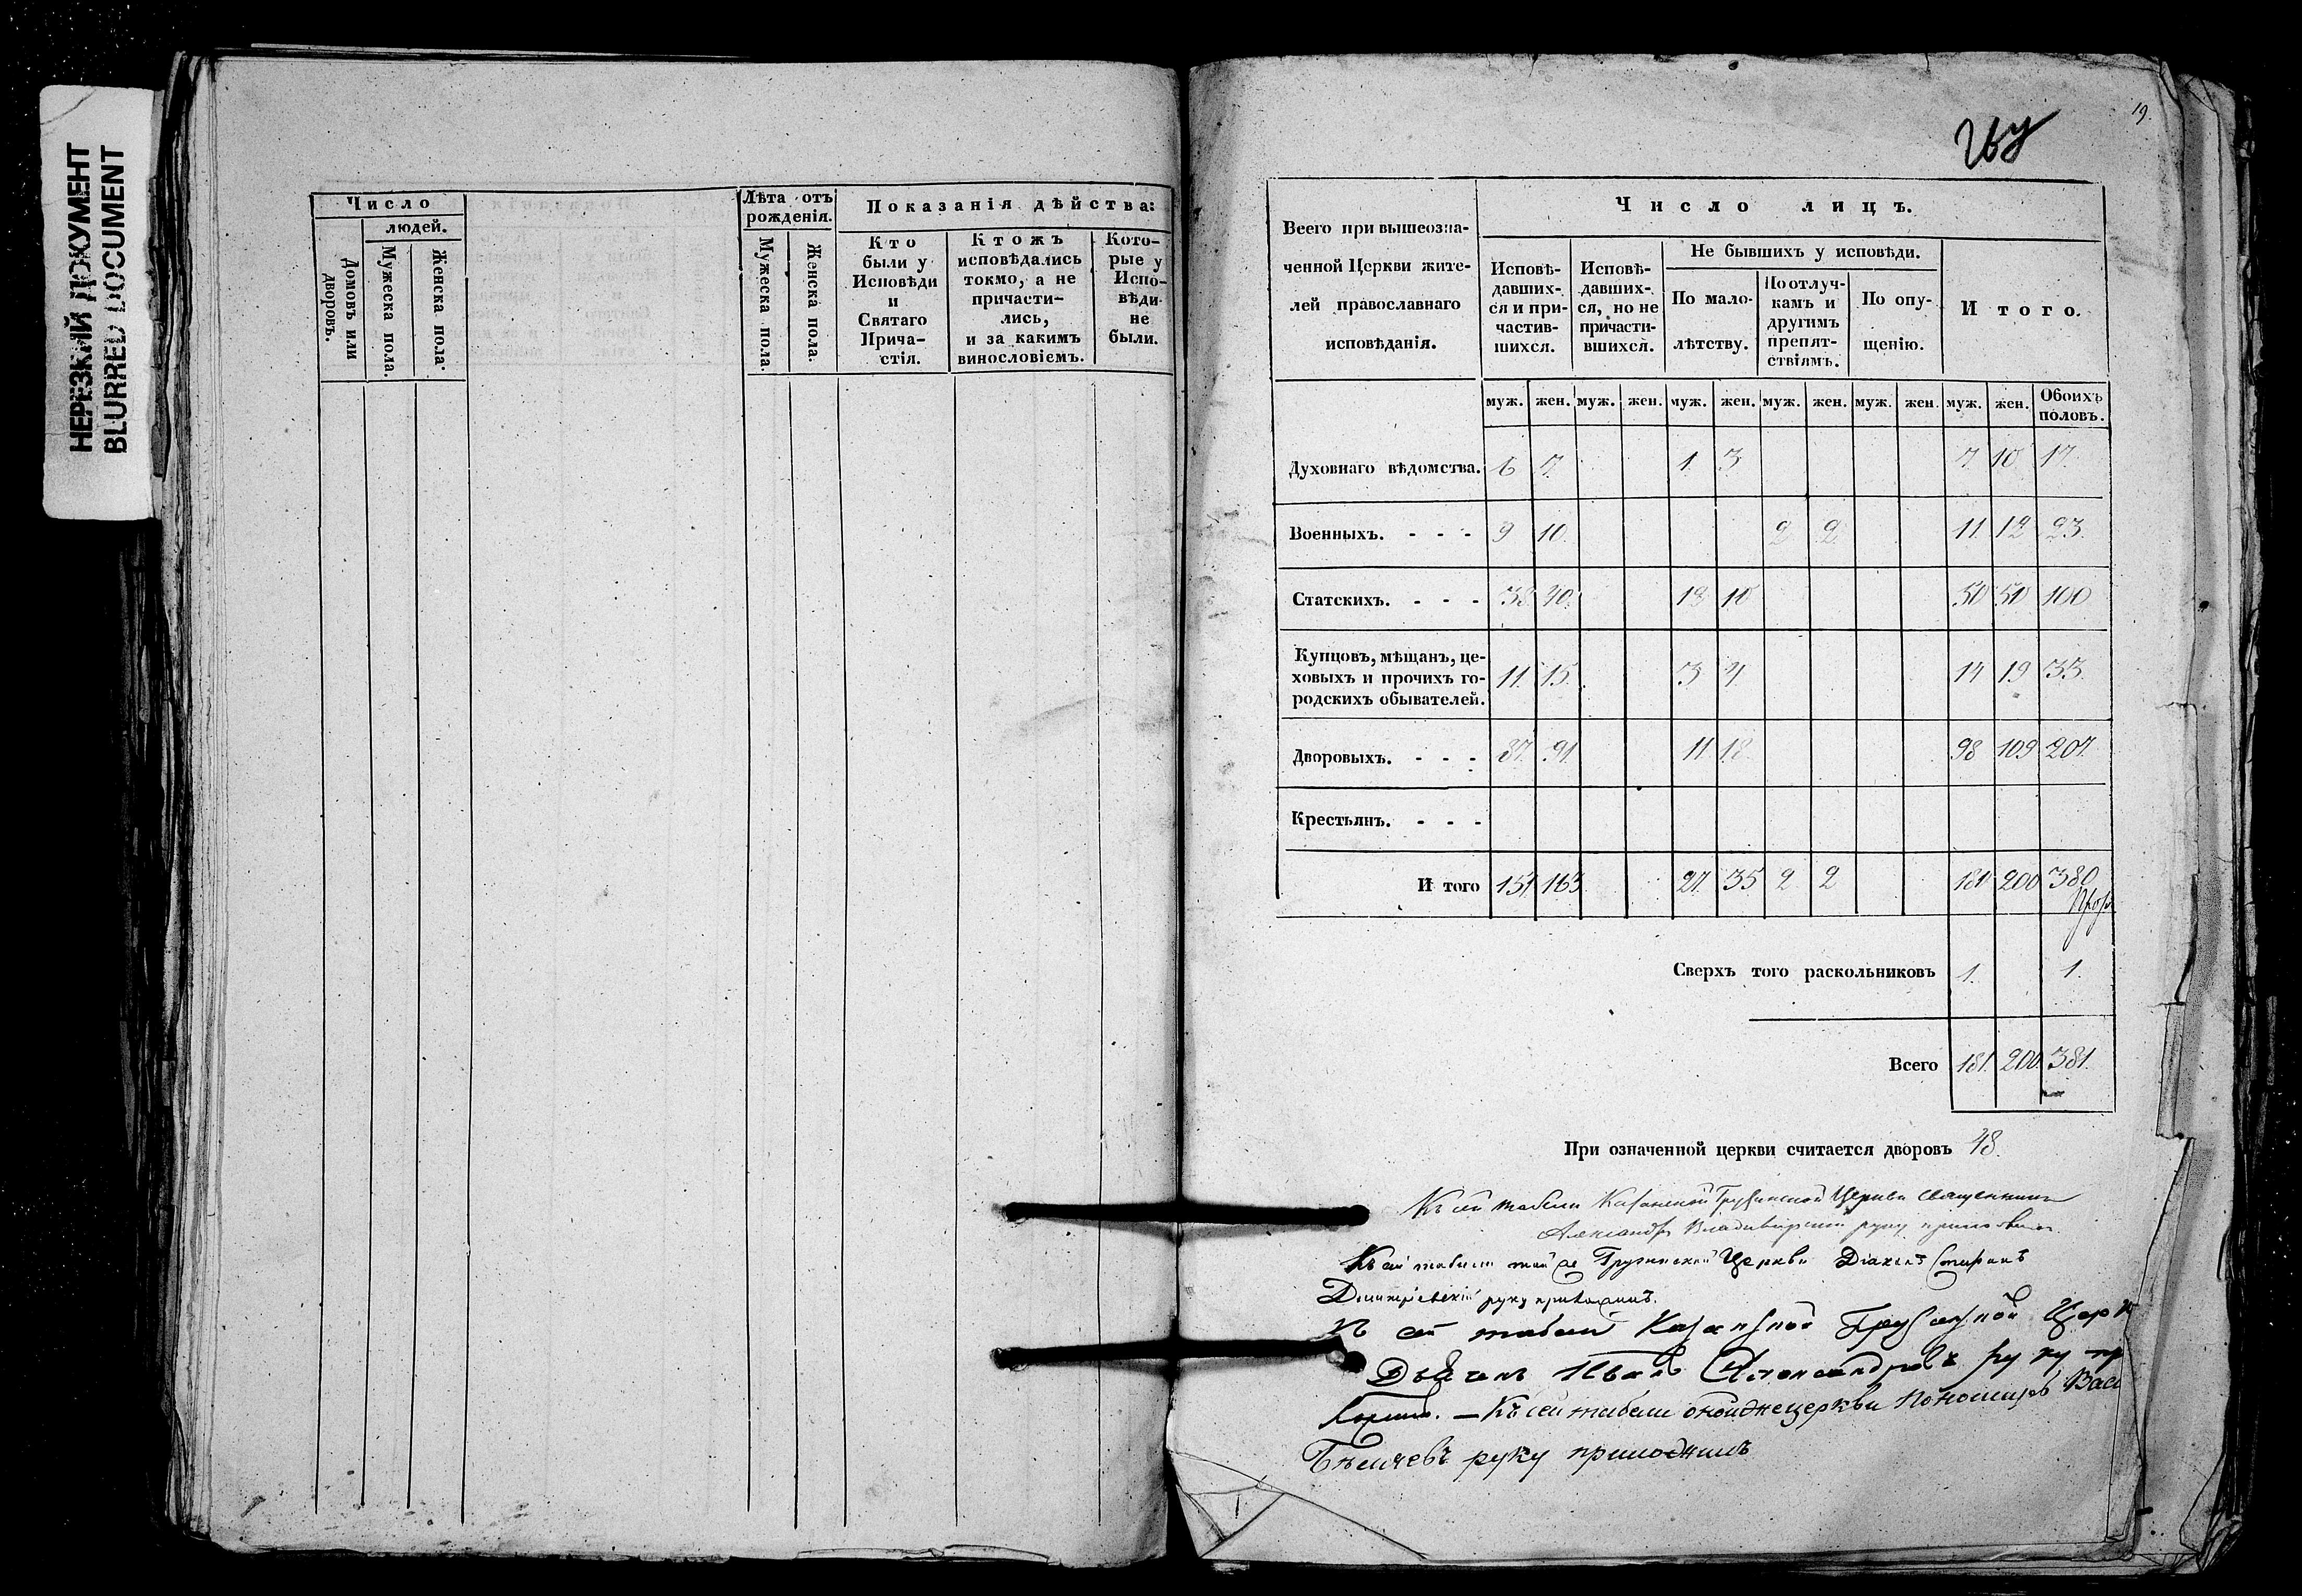 НЕРЕЗКИЙ ДОКУМЕНТ
BLURRED DOCUMENT
Число
людей.
Домовъ или дворовъ.
Мужеска пола.
Женска пола.
Лѣта отъ рожденія.
Мужеска пола.
Женска пола.
Показанія дѣйства:
Кто были у Исповѣди и Святаго Прича-стія.
Ктожъ исповѣдались токмо, а не причасти-лись, и за какимъ винословіемъ.
Кото-рые у Испо-вѣди не были.
19.
Всего при вышеозна-
ченной Церкви жите-
лей православнаго
исповѣданія.
Число лицъ.
Исповѣ-давших-ся и при-частив-шихся.
Исповѣ-давших-ся, но не причасти-вшихся.
Не бывшихъ у исповѣди.
По мало-лѣтству.
По отлуч-камъ и другимъ препят-ствіямъ.
По опу-щенію.
И того.
муж. жен. муж. жен. муж. жен. муж. жен. муж. жен. муж. жен. Обоихъ половъ.
Духовнаго вѣдомства. 6 7. 1. 3 7. 10 17.
Военныхъ. - - - 9 10. 2 2. 11. 12 23.
Статскихъ. - - - 38 40. 12 10 50 50 100
Купцовъ, мѣщанъ, це-
ховыхъ и прочихъ го-
родскихъ обывателей. 11. 15. 3 4. 14 19 33.
Дворовыхъ. - - - 87. 91. 11 18. 98 109 207.
Крестьянъ. - - -
И того 151. 163. 27. 35 2 2 180 200 380
Сверхъ того раскольниковъ 1. 1.
Всего 181. 200. 381.
При означенной церкви считается дворовъ 48.
Къ сей табели Казанской Грузинской Церкви Священникъ
Александръ Владимірскій руку приложилъ.
Къ сей табели той же Грузинской Церкви Діаконъ Стефанъ
Димитріевскій руку приложилъ.
Къ сей табели Казанской Грузинской Церк
Дьячекъ Иванъ Александровъ руку пр
ложилъ. — Къ сей табели оной же церкви Пономарь Васи
Бѣляевъ руку приложилъ